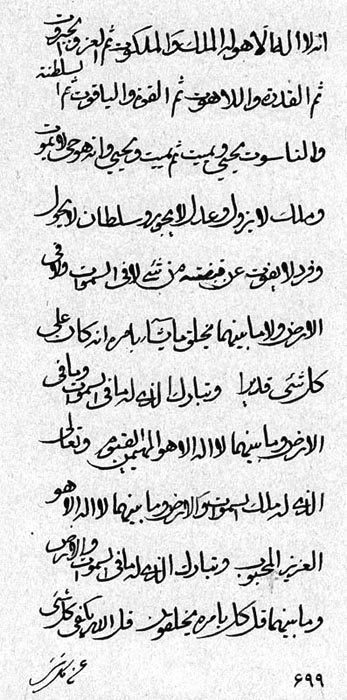 انه لا اله الا هو له الملك و الملكوت ثم العز و الجبروت
ثم القدرة و اللاهوت ثم القوة و الياقوت ثم السلطنة
و الناسوت يحيى و يميت ثم يميت و يحيى و انه هو حى لا يموت
و ملك لا يزول و عدل لا يجور و سلطان لا يحول
و فرد لا يفوت عن قبضته من شئ لا فى السموات و لا فى
الارض و لا ما بينهما يخلق ما يشاء بامره انه كان على
كل شئ قديرا و تبارك الذى له ما فى السموات و ما فى
الارض و ما بينهما لا اله الا هو المهيمن القيوم و تعالى
الذى له ملك السموات و الارض و ما بينهما لا اله الا هو
العزيز المحبوب و تبارك الذى له ما فى السموات و الارض
و ما بينهما قل كل بامره يخلقون قل الله يكفى كل شئ
۶۹۹